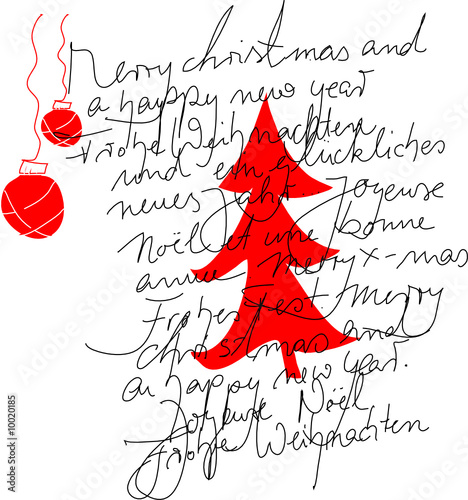 Merry christmas and
a happy new year
Frohe Weihnachten
und ein glückliches
neues Jahr Joyeuse
Noël et une bonne
annee merry x-mas
Frohes Fest merry
christmas and
a happy new year.
Joyeuse Noël
Frohe Weihnachten
10020185